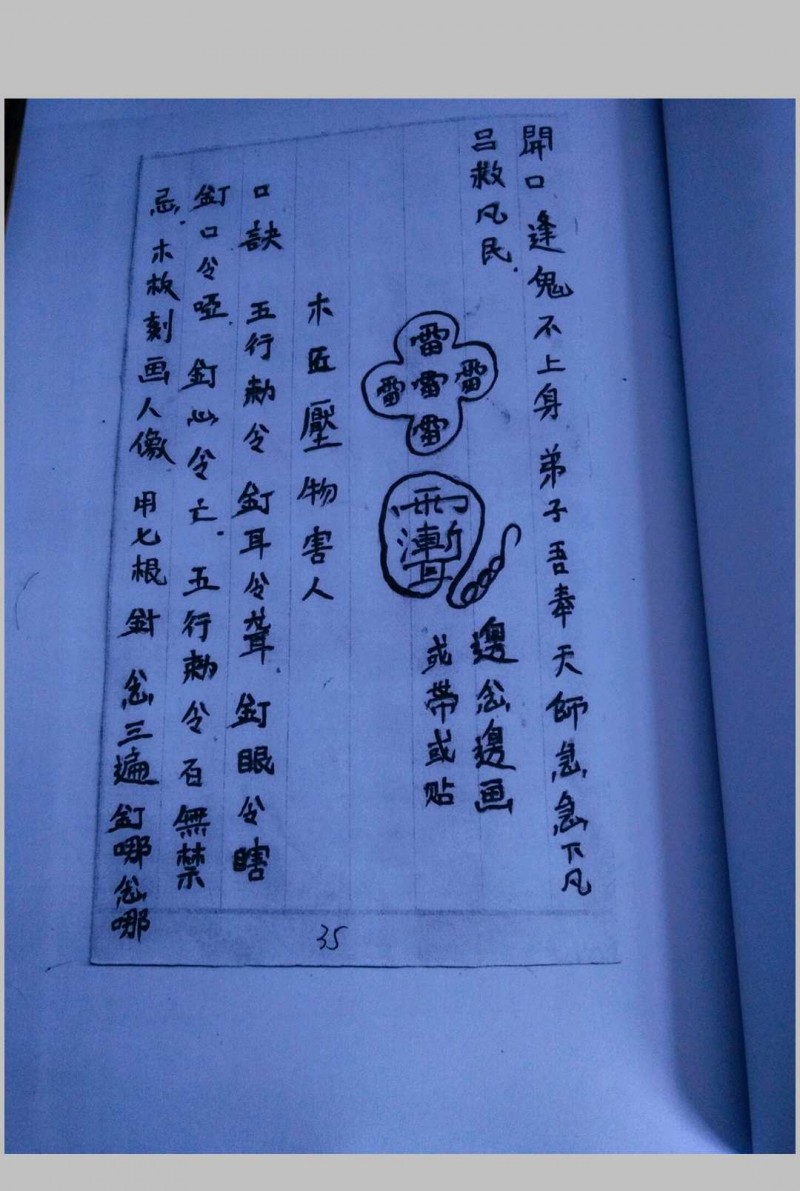 開口逢鬼不上身 弟子吾奉天師急急下凡
吕救凡民.
雷
雷雷雷
雷
雨漸耳
邊念邊画
或帶或贴
木匠壓物害人
口訣 五行勅令 釘耳令聋. 釘眼令瞎
釘口令哑. 釘心令亡. 五行勅令百無禁
忌. 木板刻画人像 用七根針 念三遍 釘哪念哪
35